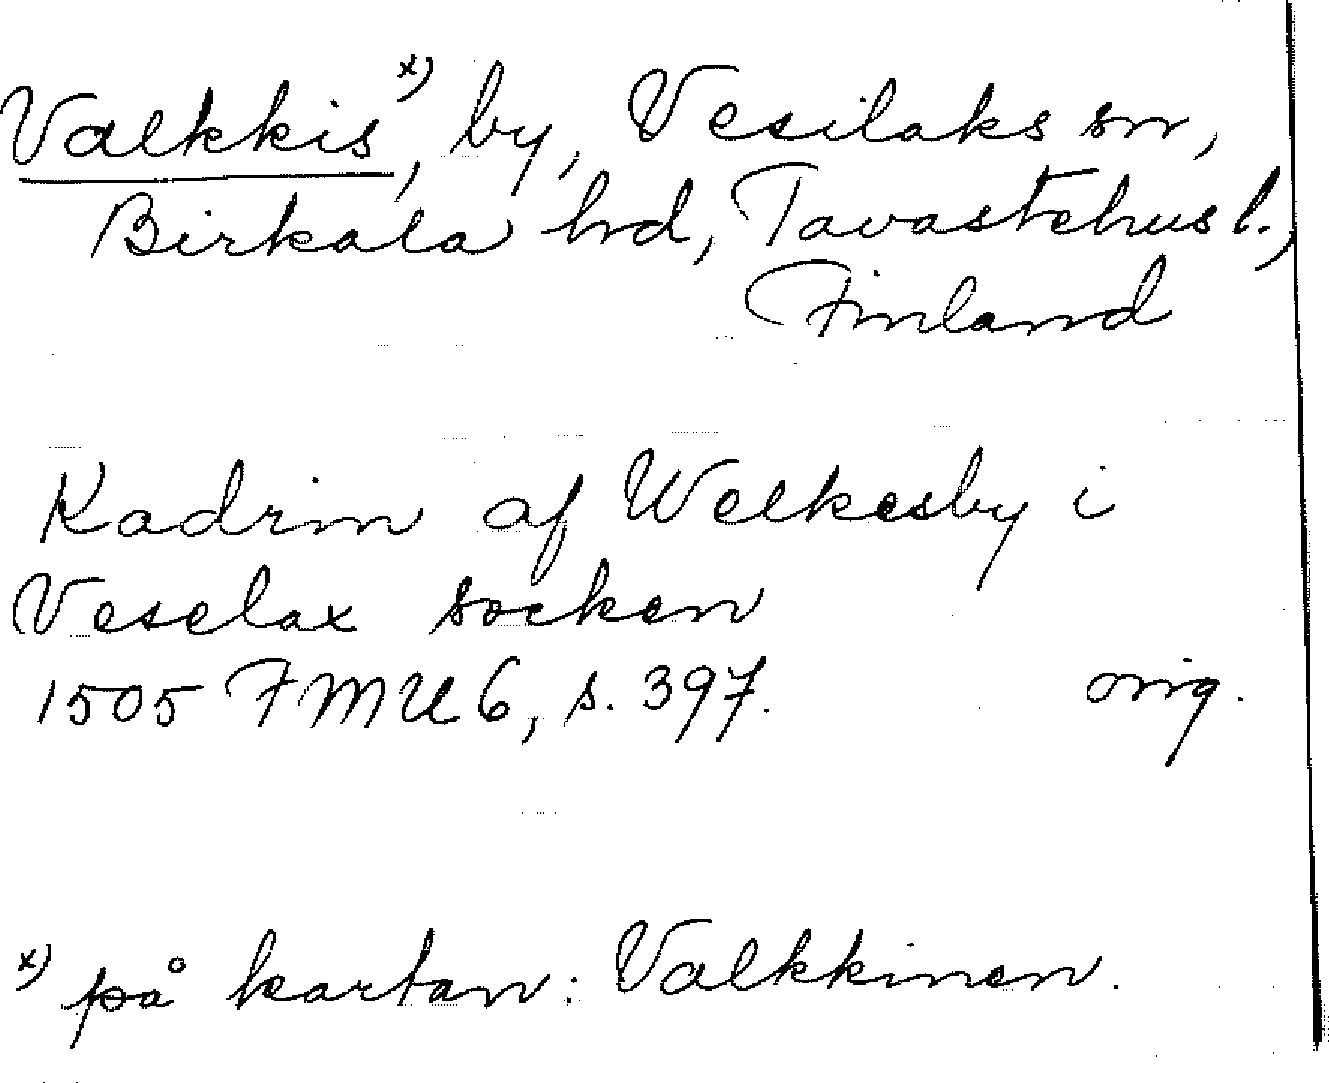 Valkkis x), by, Vesilaks sn,
Birkala hd, Tavastehus l.,
Finland
Kadrin af Welkesby i
Veselax socken
1505 FMU 6, s. 397. orig.
x) på kartan: Valkkinen.